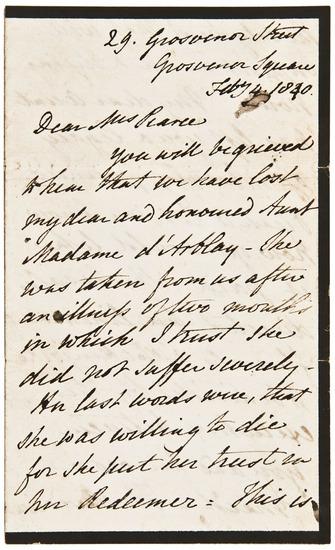 29. Grosvenor Street
Grosvenor Square
Feby 4. 1840.
Dear Mrs Pearce
You will be grieved
to hear that we have lost
my dear and honoured Aunt
Madame d'Arblay - She
was taken from us after
an illness of two months
in which I trust she
did not suffer severely -
Her last words were, that
she was willing to die
for she put her trust in
her Redeemer = This is